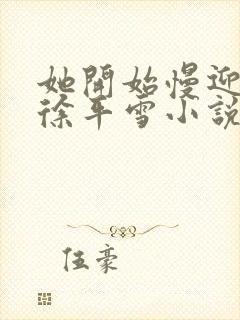 她開始慢迎
徐平雪小說
伍豪